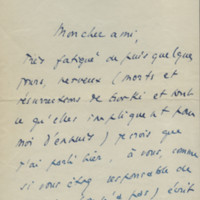 Mon cher ami,
Très fatigué depuis quelques
jours, nerveux (morts et
résurrections de Gorki et tout
ce qu'elles impliquent pour
moi d'ennuis) je crois que
j'ai parlé hier, à vous, comme
si vous étiez responsable de
pas) écrit